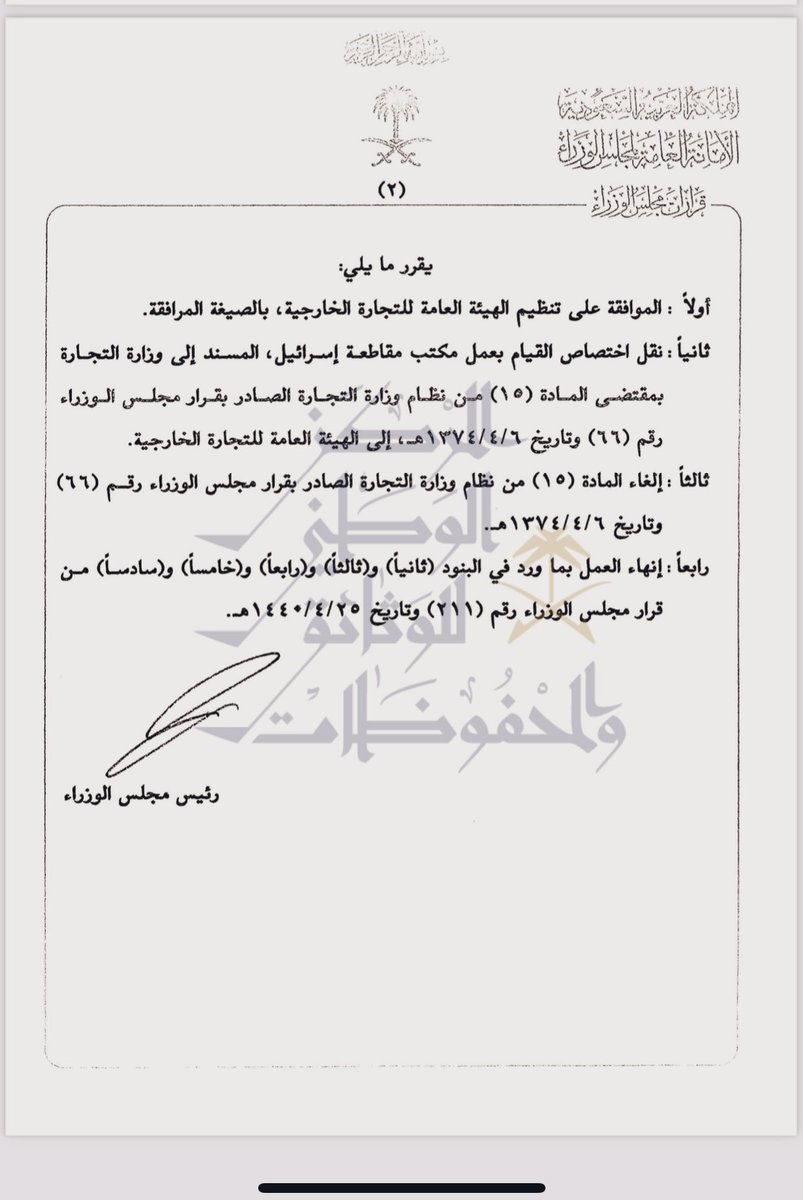 بسم الله الرحمن الرحيم
المملكة العربية السعودية
الأمانة العامة لمجلس الوزراء
(٢)
قرارات مجلس الوزراء
يقرر ما يلي:
أولاً : الموافقة على تنظيم الهيئة العامة للتجارة الخارجية، بالصيغة المرافقة.
ثانياً : نقل اختصاص القيام بعمل مكتب مقاطعة إسرائيل، المسند إلى وزارة التجارة
بمقتضى المادة (١٥) من نظام وزارة التجارة الصادر بقرار مجلس الوزراء
رقم (٦٦) وتاريخ ١٣٧٤/٤/٦هـ، إلى الهيئة العامة للتجارة الخارجية.
ثالثاً : إلغاء المادة (١٥) من نظام وزارة التجارة الصادر بقرار مجلس الوزراء رقم (٦٦)
وتاريخ ١٣٧٤/٤/٦هـ.
رابعاً : إنهاء العمل بما ورد في البنود (ثانياً) و(ثالثاً) و(رابعاً) و(خامساً) و(سادساً) من
قرار مجلس الوزراء رقم (٢١١) وتاريخ ١٤٤٠/٤/٢٥هـ.
رئيس مجلس الوزراء
المركز
الوطني
للوثائق
والمحفوظات